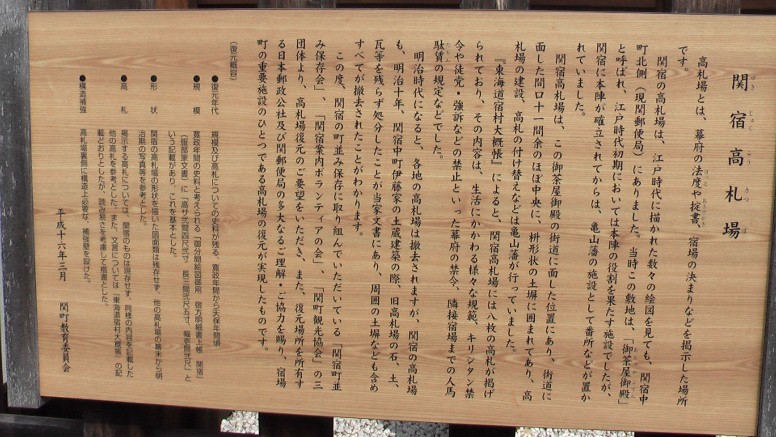 関宿高札場
高札場とは、幕府の法度や掟書、宿場の決まりなどを掲示した場所
です。
関宿の高札場は、江戸時代に描かれた数々の絵図を見ても、関宿中
町北側（現関郵便局）にありました。当時この敷地は、「御茶屋御殿」
と呼ばれ、江戸時代初期においては本陣の役割を果たす施設でしたが、
関宿に本陣が確立されてからは、亀山藩の施設として番所などが置か
れていました。
関宿高札場は、この御茶屋御殿の街道に面した位置にあり、街道に
面した間口十一間余のほぼ中央に、枡形状の土塀に囲まれてあり、高
札場の建設、高札の付け替えなどは亀山藩が行っていました。
『東海道宿村大概帳』によると、関宿高札場には八枚の高札が掲げ
られており、その内容は、生活にかかわる様々な規範、キリシタン禁
令や徒党・強訴などの禁止といった幕府の禁令、隣接宿場までの人馬
駄賃の規定などでした。
明治時代になると、各地の高札場は撤去されますが、関宿の高札場
も、明治十年、関宿中町伊藤家の土蔵建築の際、旧高札場の石、土、
瓦等を残らず処分したことが当家文書にあり、周囲の土塀なども含め
すべてが撤去されたことがわかります。
この度、関宿の町並み保存に取り組んでいただいている「関宿町並
み保存会」、「関宿案内ボランティアの会」、「関町観光協会」の三
団体より、高札場復元のご要望をいただき、また、復元場所を所有す
る日本郵政公社及び関郵便局の多大なるご理解・ご協力を賜り、宿場
町の重要施設のひとつである高札場の復元が実現したものです。
（復元概容）
●復元年代 規模及び高札についての史料が残る、寛政年間から天保年間頃
●規模 寛政年間の史料と考えられる
という記載があり、これを基本とした。
●形状 関宿の高札場の形状を描いた図面類は残存せず、他の高札場の幕末から明
治期の写真等を参考とした。
●高札 掲示する高札については、関宿のものは現存せず、同様の内容を記載した
他の高札を参考とした。また、文言については『東海道宿村大概帳』の記
載どおりとしたが、読み易さを考慮して楷書とした。
●構造補強 高札場裏側に構造上必要な、補強壁を設けた。
平成十六年三月 関町教育委員会